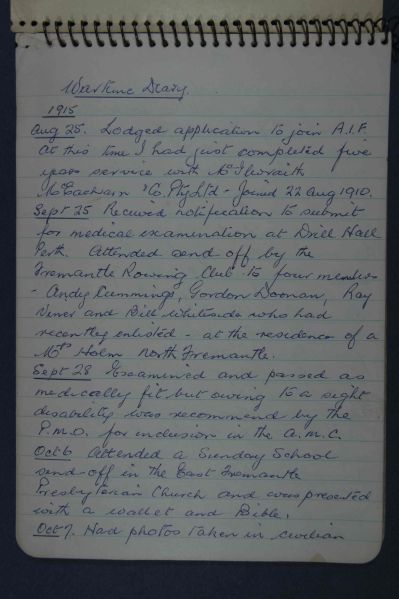 Wartime Diary.
1915
Aug 25. Lodged application to join A.I.F.
At this time I had just completed five
years service with McIlwraith
McEacharn & Co. Pty Ltd - Joined 22 Aug 1910.
Sept 25 Received notification to submit
for medical examination at Drill Hall
Perth. Attended send off by the
Fremantle Rowing Club to four members
- Andy Cummings, Gordon Doonan, Ray
and Bill Whiteside who had
recently enlisted - at the residence of a
Mrs Holm North Fremantle.
Sept 28 Examined and passed as
medically fit but owing to a sight
disability was recommend by the
P.M.O. for inclusion in the A.M.C.
Oct 6 Attended a Sunday School
send-off in the East Fremantle
Presbyterian Church and was presented
with a wallet and Bible.
Oct 7. Had photos taken in civilian